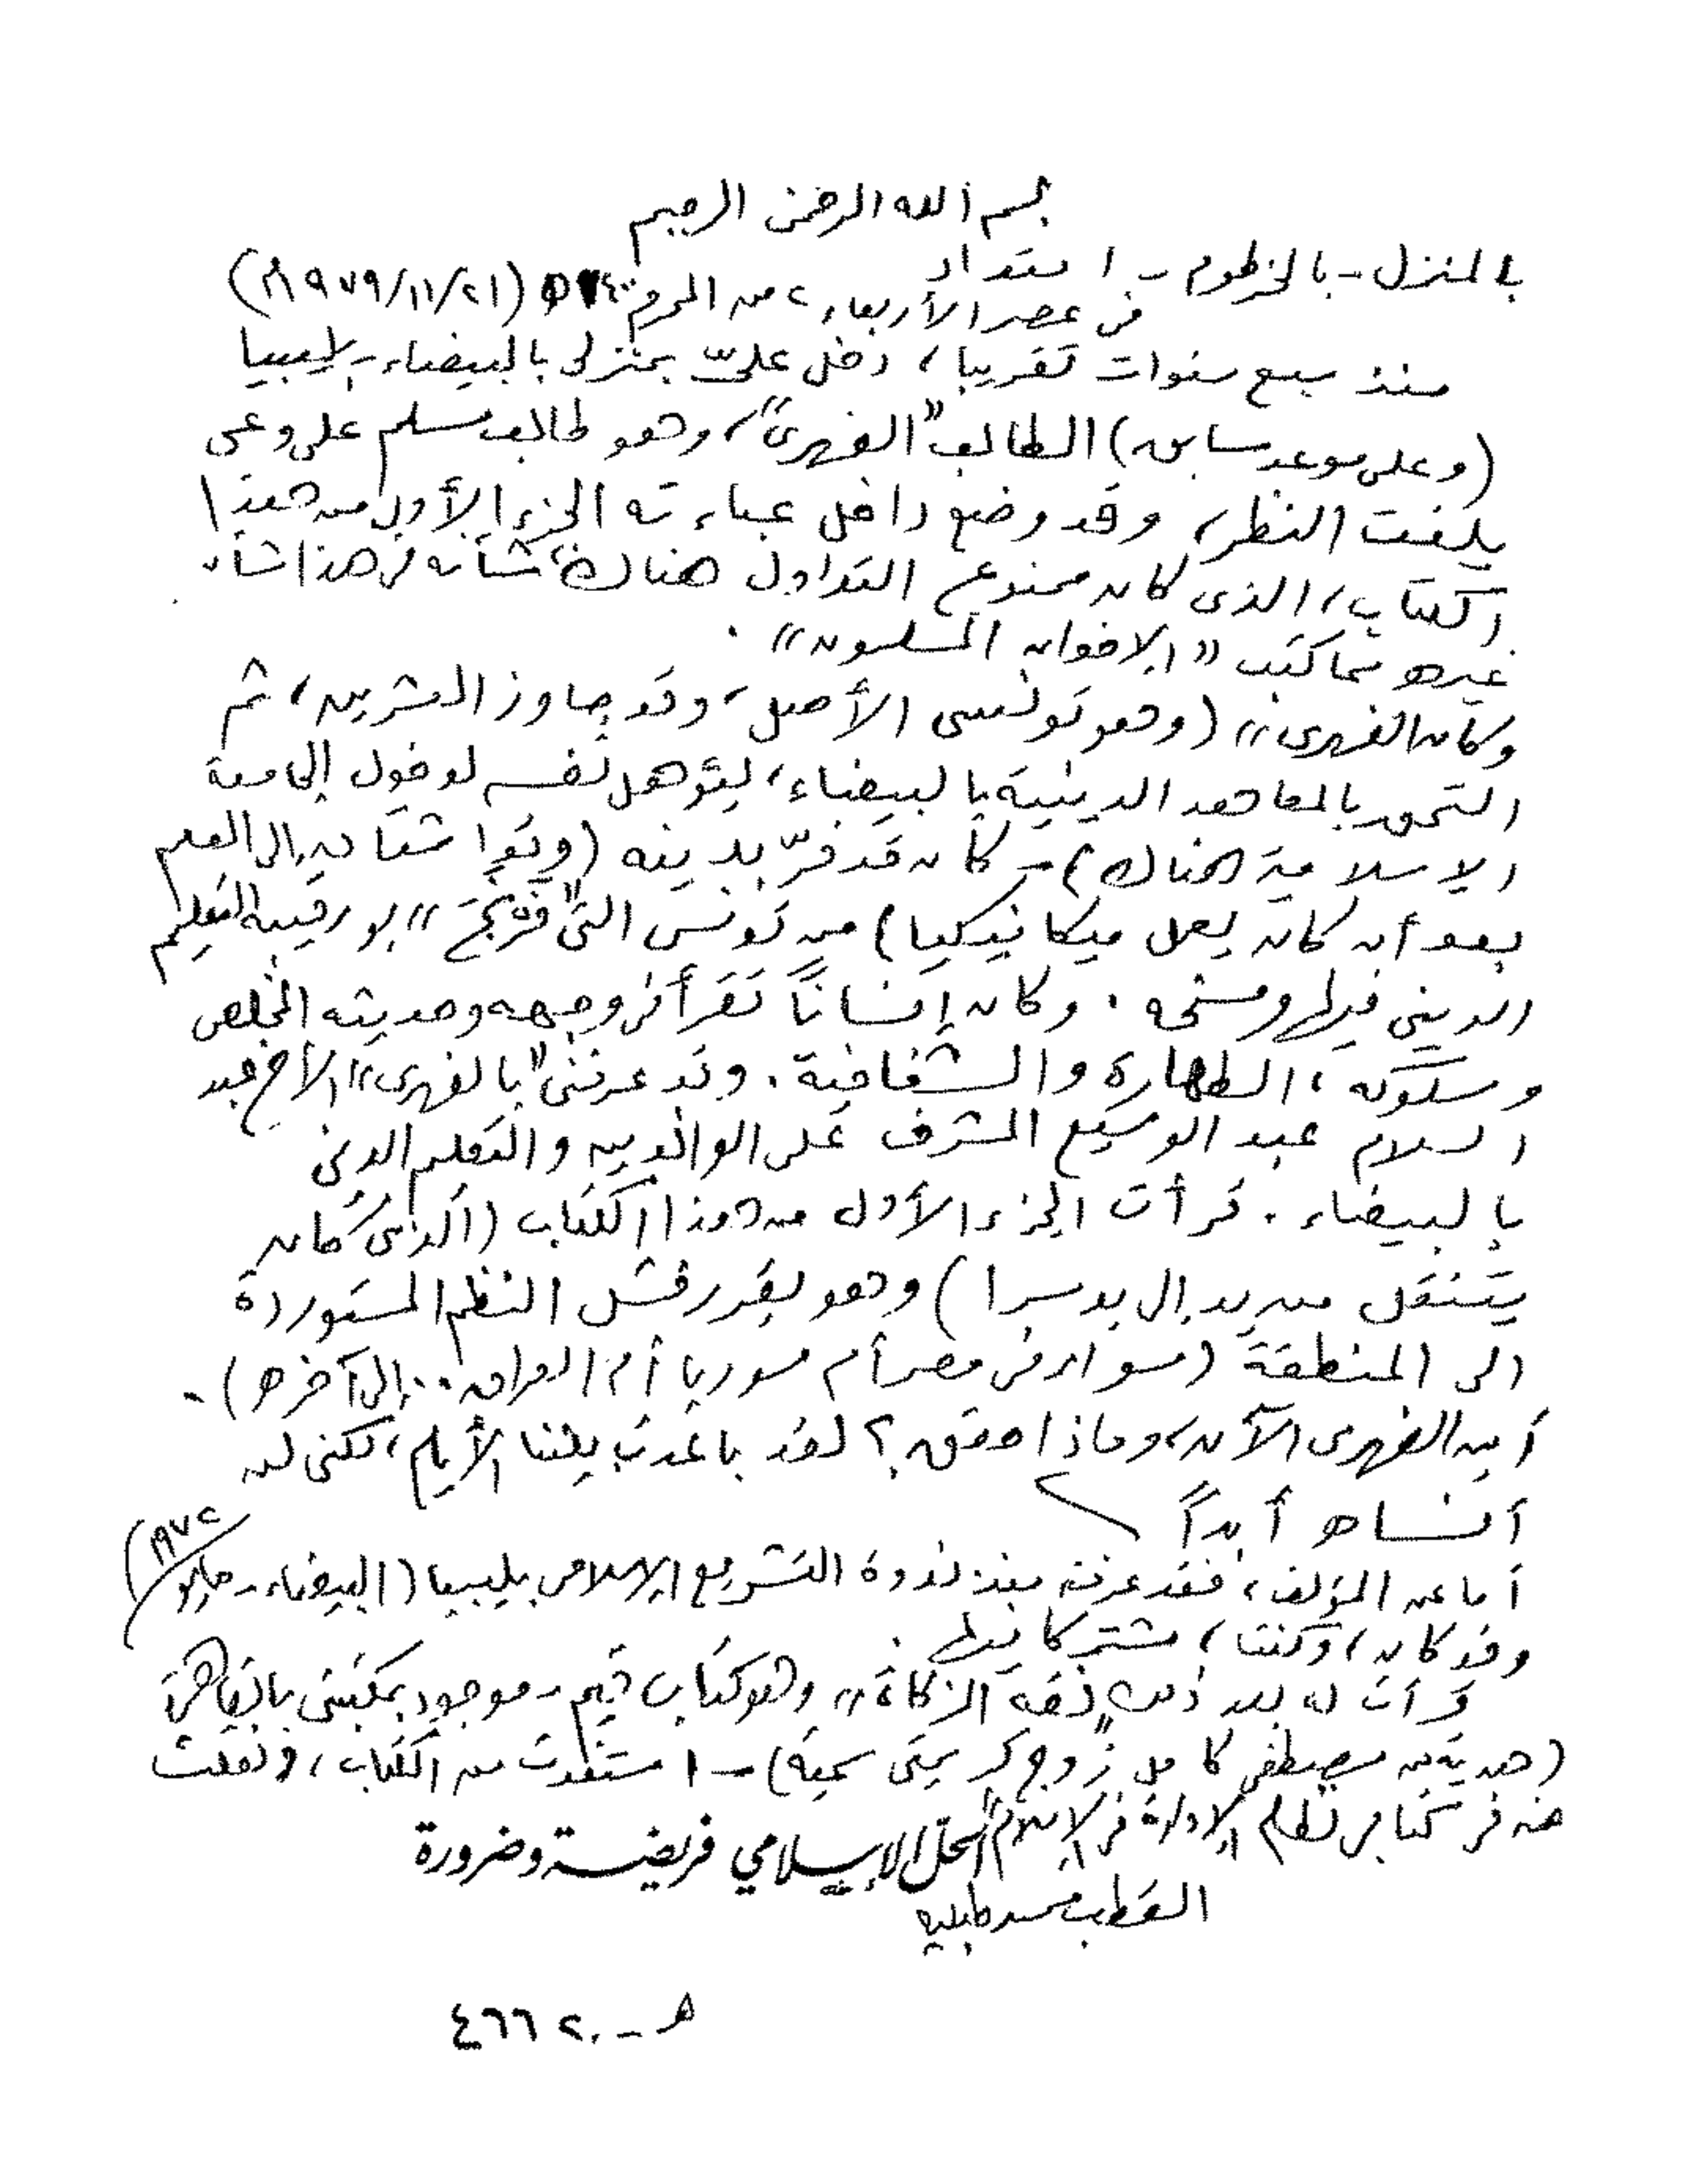 بسم الله الرحمن الرحيم
بالمنزل - بالخرطوم - امتداد
فى عصر الأربعاء ٢ من المحرم ١٤٠٠ هـ (٢١/١١/١٩٧٩م)
منذ سبع سنوات تقريبا، دخل علىّ بمنزلى بالبيضاء - ليبيا
(وعلى موعد سابق) الطالب "الفهرى"، وهو طالب مسلم على وعى
يلفت النظر، وقد وضع داخل عباءته الجزء الأول من هذا
الكتاب، الذى كان ممنوع التداول هناك، شأنه فى هذا شأن
غيره مما كتب "الإخوان المسلمون".
وكان الفهرى" (وهو تونسى الأصل، وقد جاوز العشرين، ثم
التحق بالمعاهد الدينية بالبيضاء، ليؤهل نفسه لدخول الجامعة
الإسلامية هناك) - كان قد فرّ بدينه (وتواقا إلى العلم
بعد أن كان يعمل ميكانيكيا) من تونس التى "فرنج" بورقيبه التعليم
الدينى فيها ومسخه. وكان إنسانًا تقرأ فى وجهه وحديثه المخلص
وسلوكه، الطهارة والشفافية. وقد عرفنى "بالفهرى" الأخ عبد
السلام عبد الوسيع المشرف على الوافدين والتعليم الدينى
بالبيضاء. قرأت الجزء الأول من هذا الكتاب (الذى كان
يتنقل من يد إلى يد سرا) وهو يقرر فشل النظم المستوردة
الى المنطقة (سواء فى مصر أم سوريا أم العراق .. إلى آخره).
أين الفهرى الآن، وماذا حقق؟ لقد باعدت بيننا الأيام، لكنى لن
أنساه أبداً
أما عن المؤلف، فقد عرفته منذ ندوة التشريع الإسلامى بليبيا (البيضاء - مايو ١٩٧٢)
وقد كان، وكنت، مشتركا فيها.
قرأت له بعد ذلك "فقه الزكاة" وهو كتاب قيم - موجود بمكتبتى بالقاهرة
(هدية من مصطفى كامل زوج كريمتى سمية) - استفدت من الكتاب، ونقلت
عنه فى كتابى نظام الإدارة فى الإسلام" الحل الإسلامي فريضة وضرورة
القطب محمد طبلية
هـ - ٤٦٦٢٠